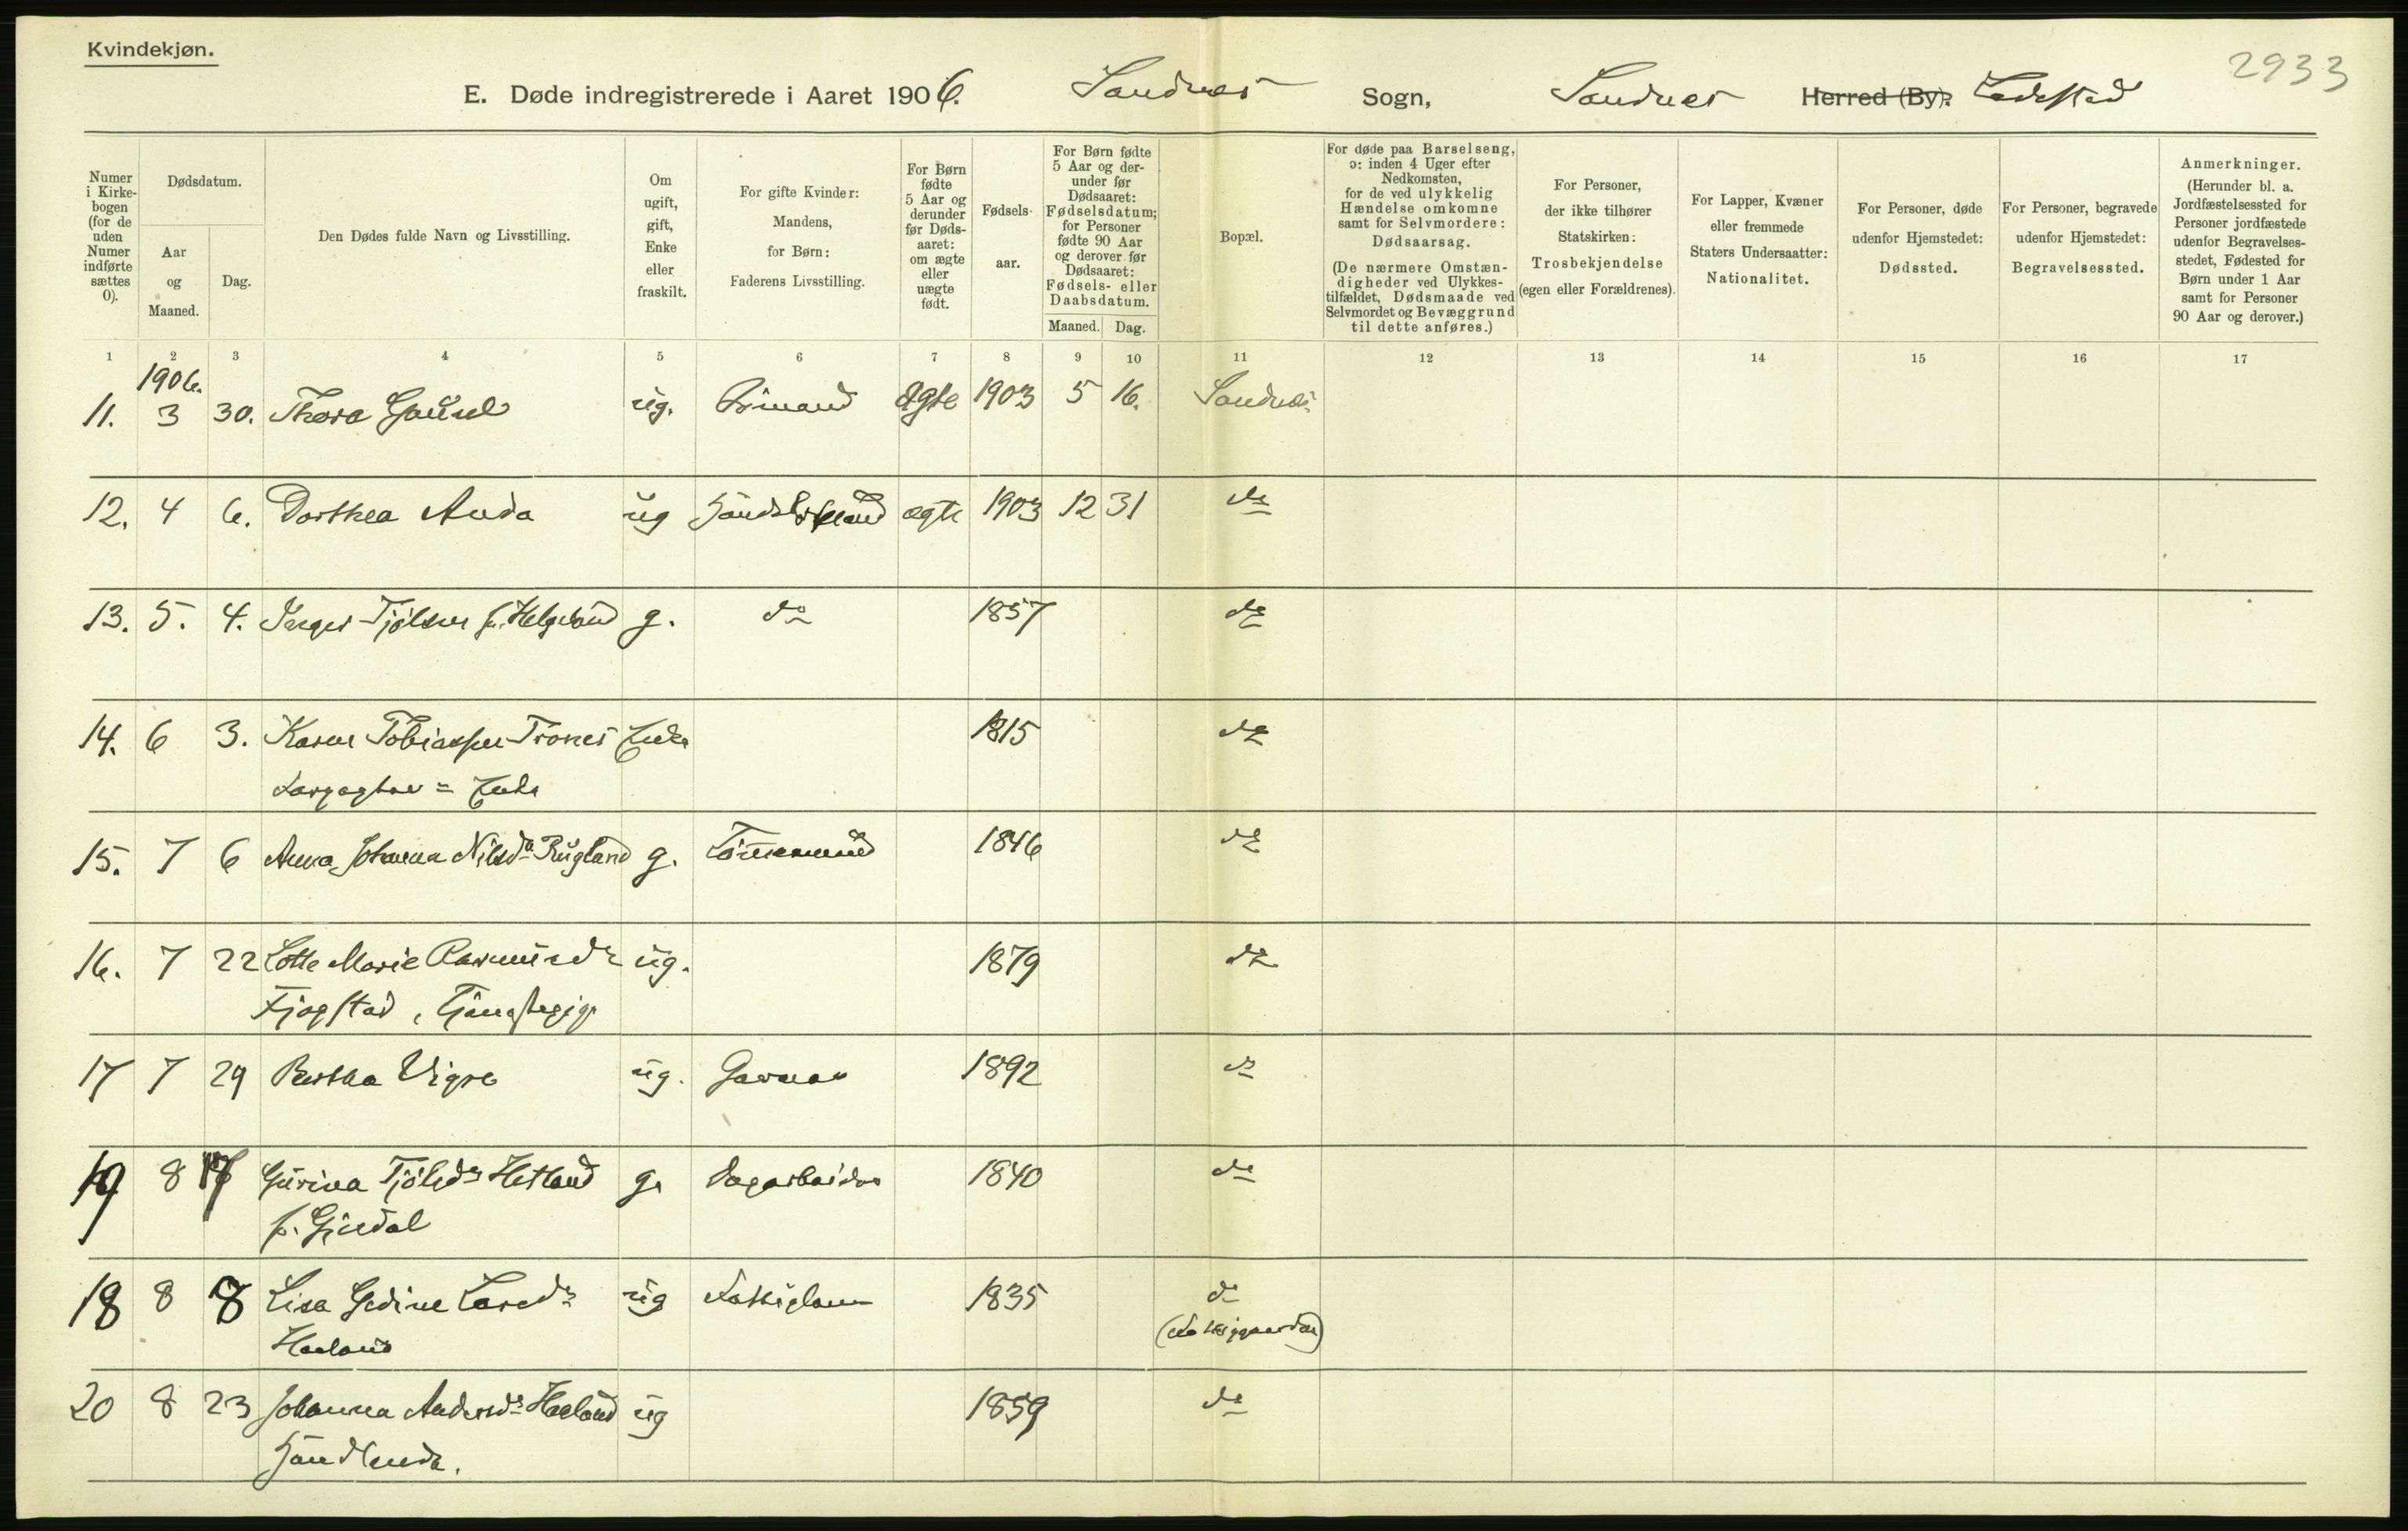 Kvindekjøn.
2933
E. Døde indregistrerede i Aaret 1906. Sandnes Sogn, Sandnes Herred (By). Ladested
Numer i Kirkebogen (for de uden Numer indførte sættes 0).
Dødsdatum.
Aar og Maaned.
Dag.
Den Dødes fulde Navn og Livsstilling.
Om ugift, gift, Enke eller fraskilt.
For gifte Kvinder: Mandens, for Børn: Faderens Livsstilling.
For Børn fødte 5 Aar og derunder før Dødsaaret: om ægte eller uægte født.
Fødselsaar.
For Børn fødte 5 Aar og derunder før Dødsaaret: Fødselsdatum; for Personer fødte 90 Aar og derover før Dødsaaret: Fødsels- eller Daabsdatum.
Maaned. Dag.
Bopæl.
For døde paa Barselseng, ɔ: inden 4 Uger efter Nedkomsten, for de ved ulykkelig Hændelse omkomne samt for Selvmordere: Dødsaarsag.
(De nærmere Omstændigheder ved Ulykkestilfældet, Dødsmaade ved Selvmordet og Bevæggrund til dette anføres.)
For Personer, der ikke tilhører Statskirken: Trosbekjendelse (egen eller Forældrenes).
For Lapper, Kvæner eller fremmede Staters Undersaatter: Nationalitet.
For Personer, døde udenfor Hjemstedet: Dødssted.
For Personer, begravede udenfor Hjemstedet: Begravelsessted.
Anmerkninger.
(Herunder bl. a. Jordfæstelsessted for Personer jordfæstede udenfor Begravelsesstedet, Fødested for Børn under 1 Aar samt for Personer 90 Aar og derover.)
1 2 3 4 5 6 7 8 9 10 11 12 13 14 15 16 17
1906.
11. 3 30. Thora Gausel ug. ægte 1903 5 16. Sandnes
12. 4 6. Dorthea Auda ug ægte 1903 12 31 do
13. 5. 4. Tjölsen f. Helgeland g. do 1857 do
14. 6 3. Karen Tobiassen Trones Enke 1815 do
Enke
15. 7 6 Anna Johanna Nilsdr Rugland g. Tömmermand 1846 do
16. 7 22 Lotte Marie Rasmusdr ug. 1879 do
Fjogstad, Tjenestepige
17 7 29 Bertha Vigre ug. Garver 1892 do
19 8 17 Gurina Tjölsdr Hetland g. Dagarbeider 1840 do
f. Gjesdal
18 8 8 Lisa Gedine Larsdr ug Fattiglem 1835 do
Haaland
20 8 23 Johanna Andersdr Haaland ug 1859 do
Handlende.